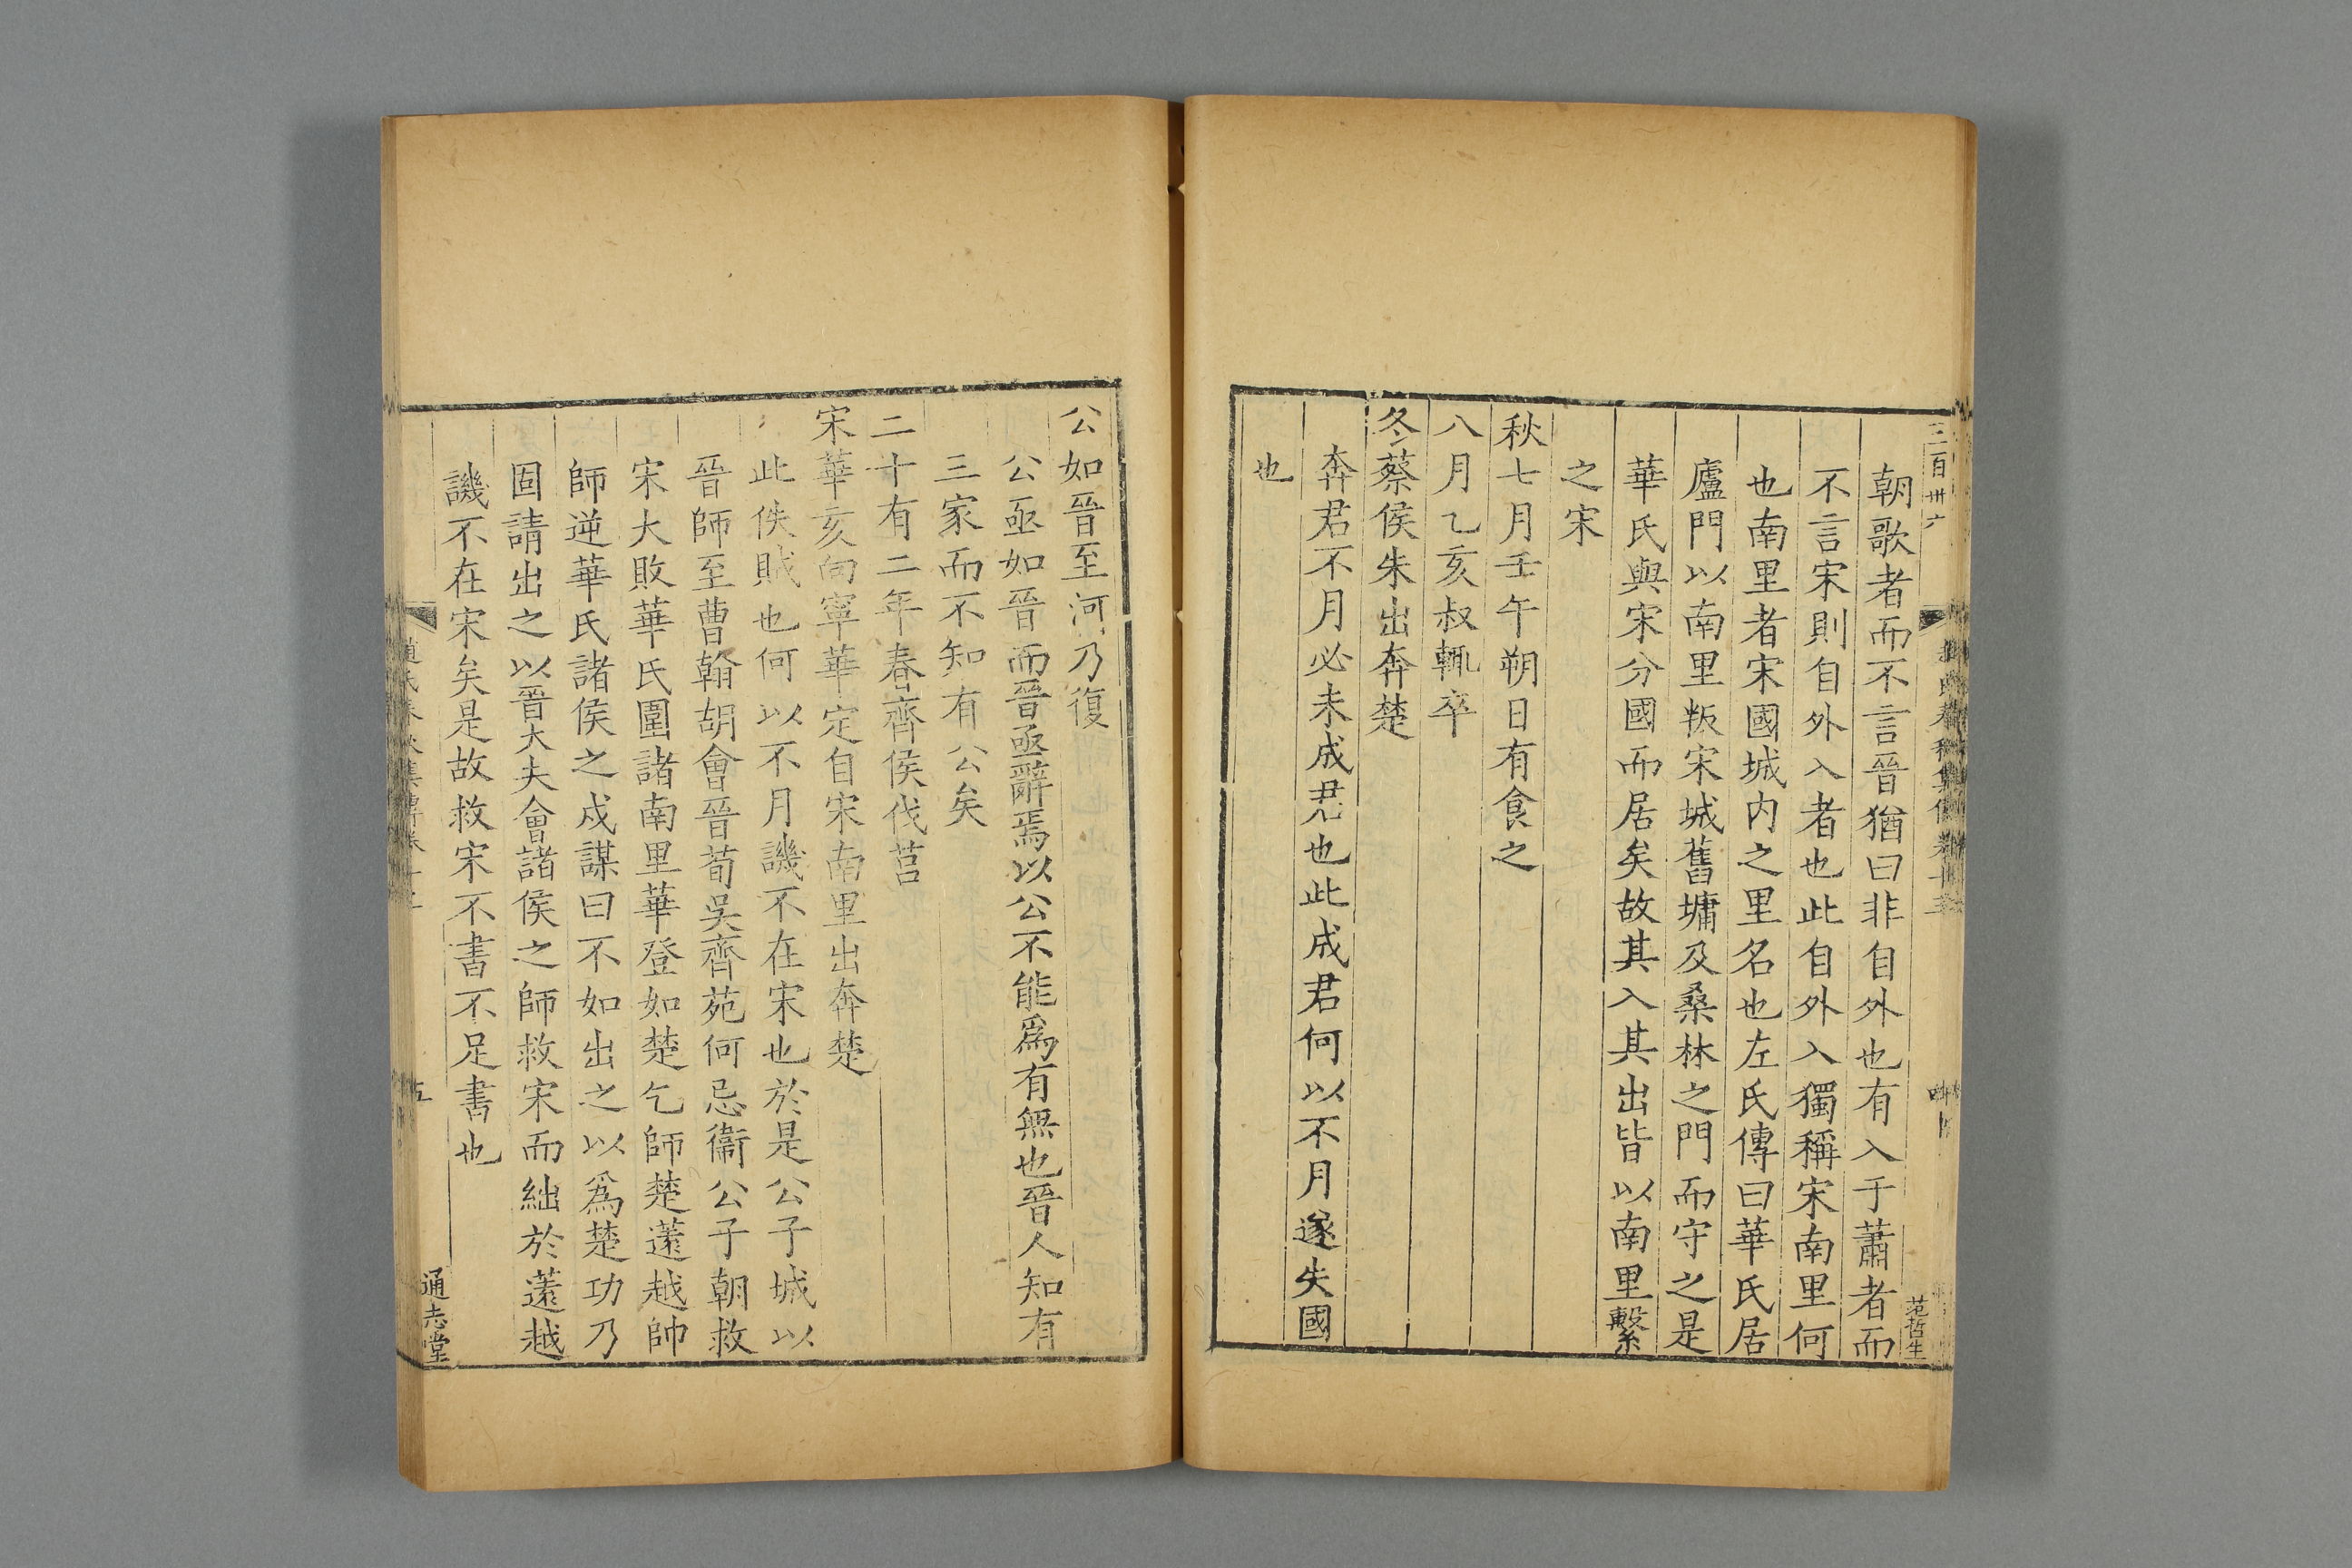 三百卅六
朝歌者而不言晉猶曰非自外也有入于蕭者而
不言宋則自外入者也此自外入獨稱宋南里何
也南里者宋國城內之里名也左氏傳曰華氏居
廬門以南里叛宋城舊墉及桑林之門而守之是
華氏與宋分國而居矣故其入其出皆以南里繫
之宋
秋七月壬午朔日有食之
八月乙亥叔輒卒
冬蔡侯朱出奔楚
奔君不月必未成君也此成君何以不月遂失國
也
范哲生
公如晉至河乃復
公亟如晉而晉亟辭焉以公不能爲有無也晉人知有
三家而不知有公矣
二十有二年春齊侯伐莒
宋華亥向寧華定自宋南里出奔楚
此佚賊也何以不月譏不在宋也於是公子城以
晉師至曹翰胡會晉荀吳齊苑何忌衞公子朝救
宋大敗華氏圍諸南里華登如楚乞師楚薳越帥
師逆華氏諸侯之戍謀曰不如出之以爲楚功乃
固請出之以晉大夫會諸侯之師救宋而絀於薳越
譏不在宋矣是故救宋不書不足書也
五
通志堂